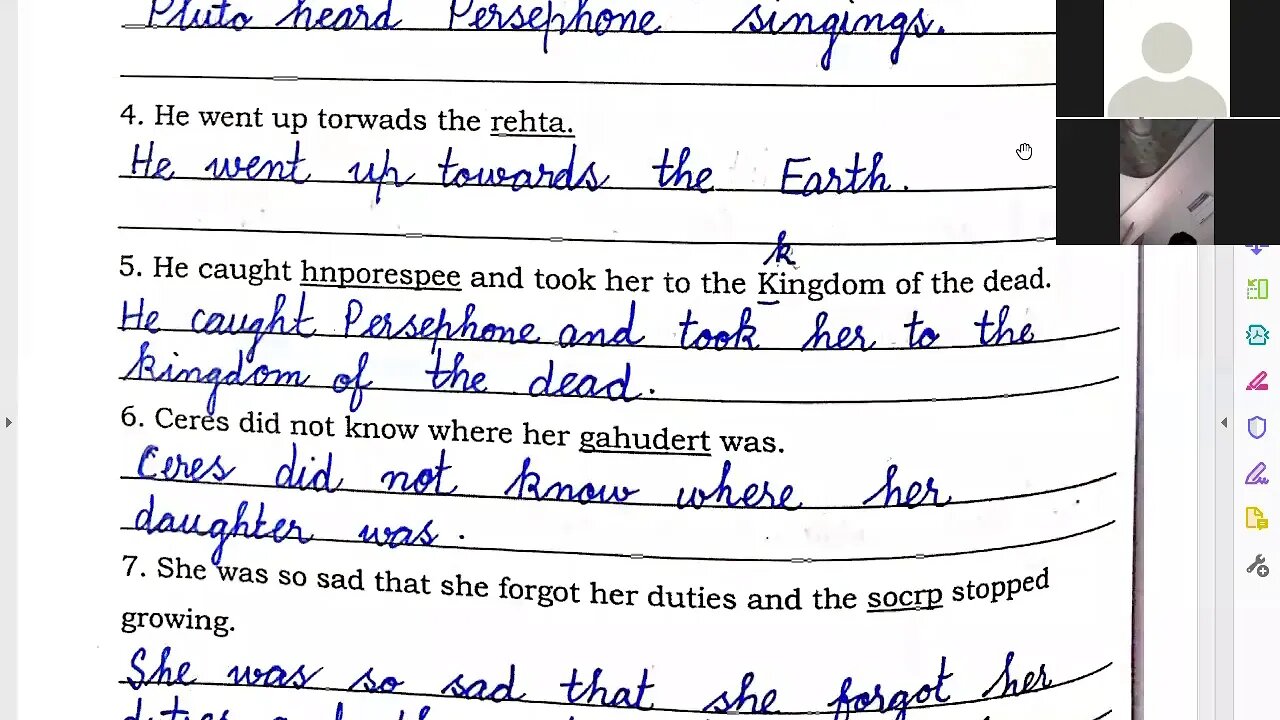 Pluto heard Persephone singings.
4. He went up torwads the rehta.
He went up towards the Earth.
k
5. He caught hnporespee and took her to the Kingdom of the dead.
He caught Persephone and took her to the
kingdom of the dead.
6. Ceres did not know where her gahudert was.
Ceres did not know where her
daughter was.
7. She was so sad that she forgot her duties and the socrp stopped
growing.
She was so sad that she forgot her
duties and the